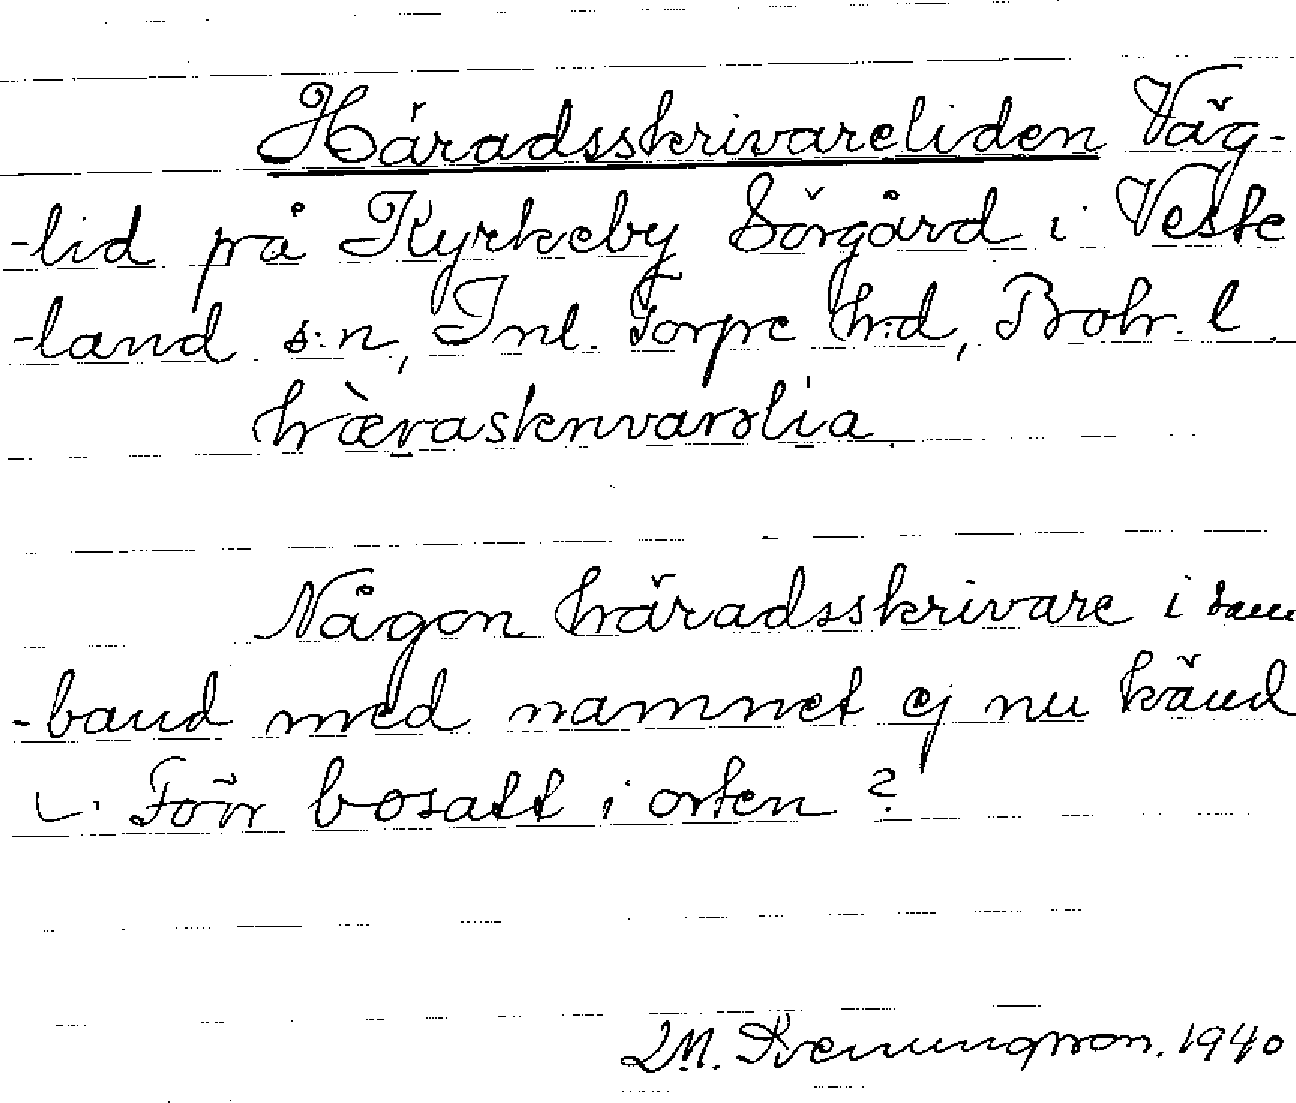 Häradsskrivareliden Väg-
-lid på Kyrkeby Sörgård i Veste
-land s:n, Inl. Torpe h:d, Boh. l.
hæraskrivarslia.
Någon häradsskrivare i sam
-band med namnet ej nu känd
Förr bosatt i orten?
1940